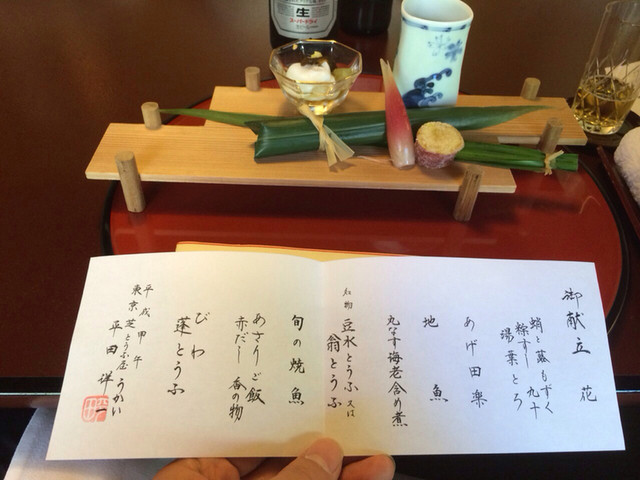 生
スーパードライ
御献立 花
蛸と蓴もずく
粽ずし 九十
湯葉とろ
あげ田楽
地魚
丸なす海老含め煮
名物 豆水とうふ 又は
翁とうふ
旬の焼魚
あさりご飯
赤だし 香の物
びわ
蓬とうふ
平成甲午
東京芝とうふ屋うかい
平田洋一